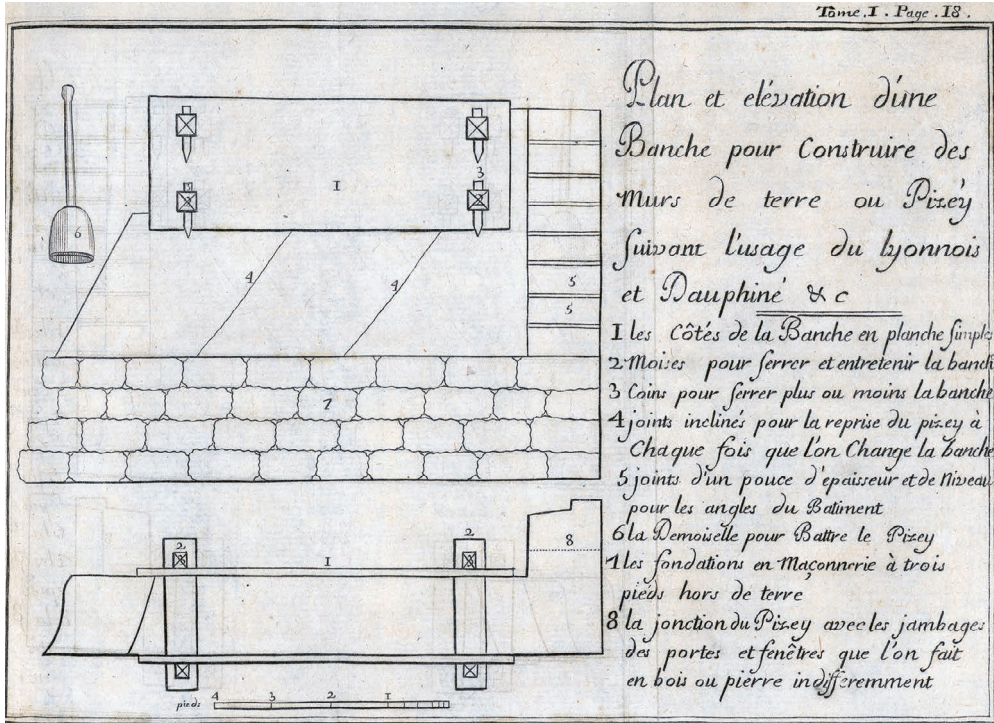 Tome.I. Page.18.
Plan et elévation d'úne
Banche pour Construire des
Murs de terre ou Pizéy
suivant l'usage du lyonnois
et Dauphiné &c
1 les Côtés de la Banche en planche simple
2 Moises pour serrer et entretenir la banch
3 Coins pour serrer plus ou moins la banche
4 joints inclinés pour la reprise du pizey à
Chaque fois que l'on Change la banche
5 joints d'un pouce d'épaisseur et de Niveau
pour les angles du Batiment
6 la Demoiselle pour Battre le Pizey
7 les fondations en Maçonnerie à trois
pieds hors de terre
8 la jonction du Pizey avec les jambages
des portes et fenêtres que l'on fait
en bois ou pierre indifferemment
6
1
3
4
4
5
5
7
2
2
1
8
pieds 4 3 2 1